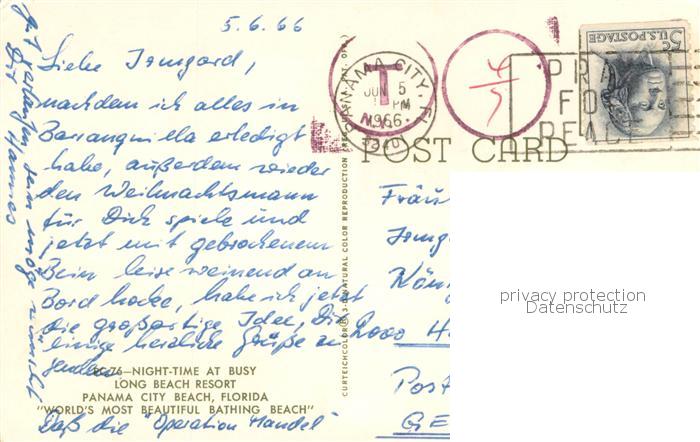 5.6.66
Liebe Irmgard,
nachdem ich alles in
Barranquilla erledigt
habe, außerdem wieder
den Weihnachtsmann
für Dich spiele und
jetzt mit gebrochenem
Bein leise weinend an
Bord hocke, habe ich jetzt
die großartige Idee, Dir
einige herzliche Grüße zu
senden
PC-76—NIGHT-TIME AT BUSY
LONG BEACH RESORT
PANAMA CITY BEACH, FLORIDA
"WORLD'S MOST BEAUTIFUL BATHING BEACH"
Daß die "Operation Mandel"
gut verlaufen sein möge wünscht
Dir Hannes
CURTEICHCOLOR® 3-D NATURAL COLOR REPRODUCTION
T
PANAMA CITY, FL
JUN 5
PM
1966
4/5
5c
U.S. POSTAGE
PRAY
FOR
PEACE
POST CARD
Fräu
Irmg
König
2000 H
Post
GE
privacy protection
Datenschutz